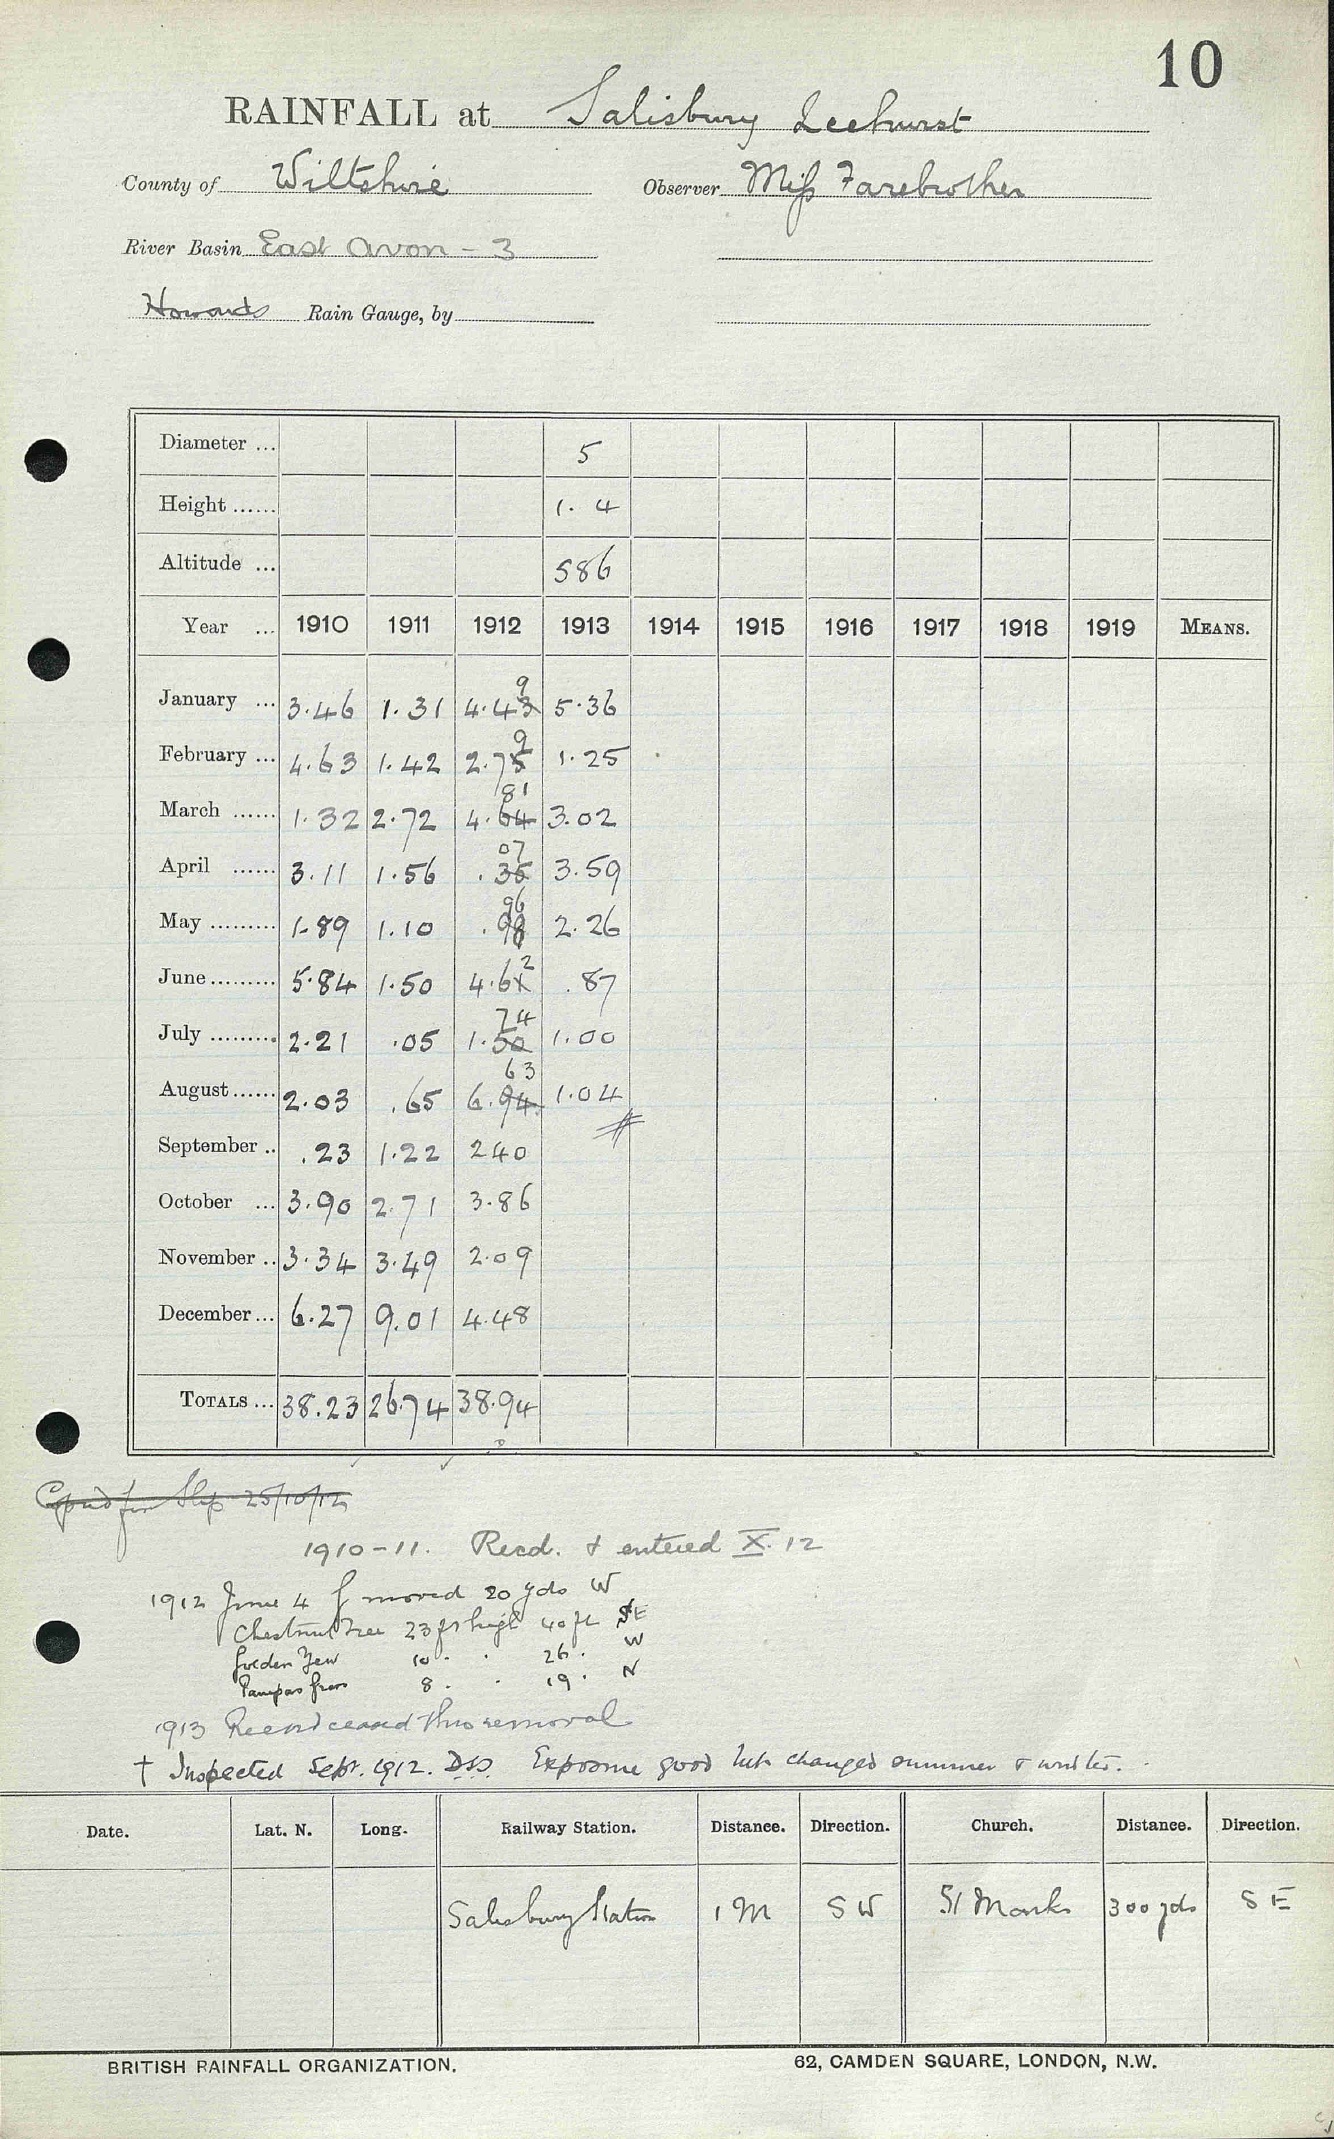 10
RAINFALL at Salisbury Leehurst
County of Wiltshire Observer Miss Farebrother
River Basin East Avon - 3
Howards Rain Gauge, by
Diameter ... 5
Height ...... 1. 4
Altitude ... 586
Year ... 1910 1911 1912 1913 1914 1915 1916 1917 1918 1919 MEANS.
9
January ... 3.46 1.31 4.43 5.36
9
February ... 4.63 1.42 2.75 1.25
81
March ...... 1.32 2.72 4.64 3.02
07
April ...... 3.11 1.56 .35 3.59
96
May ......... 1.89 1.10 .98 2.26
2
June ......... 5.84 1.50 4.61 .87
74
July ......... 2.21 .05 1.50 1.00
63
August ...... 2.03 .65 6.94 1.04
September .. .23 1.22 240
October ... 3.90 2.71 3.86
November .. 3.34 3.49 2.09
December ... 6.27 9.01 4.48
TOTALS ... 38.23 26.74 38.94
Copied from Slip 25/10/12
1910-11. Recd. & entered X. 12
1912 June 4 g moved 20 yds W
Chestnut Tree 23 ft high 40 ft SE
Golden Yew 10 . . 26 . W
Pampas grass 8 . . 19 . N
1913 Record ceased thro removal
† Inspected Sept. 1912. Exposure good but changed summer & winter.
Date. Lat. N. Long. Railway Station. Distance. Direction. Church. Distance. Direction.
Salisbury Station 1 M SW St Marks 300 yds SE
BRITISH RAINFALL ORGANIZATION. 62, CAMDEN SQUARE, LONDON, N.W.